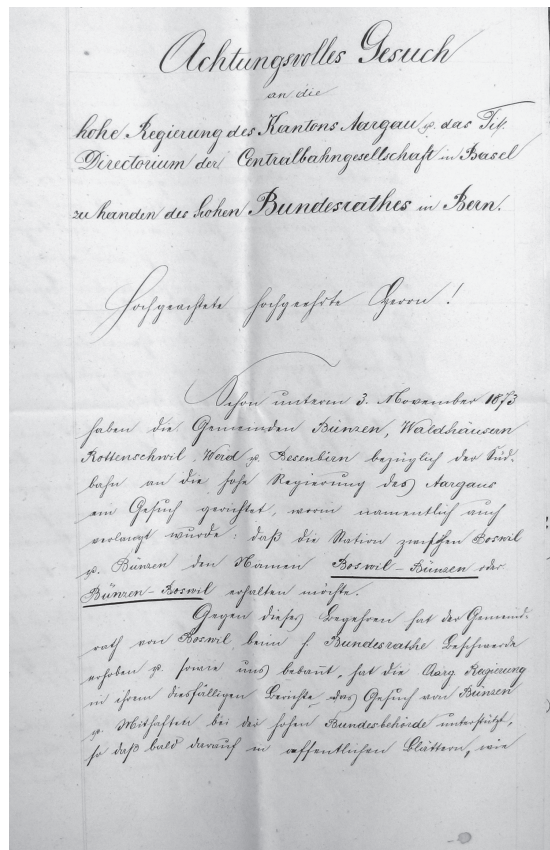 Achtungsvolles Gesuch
an die
hohe Regierung des Kantons Aargau u. das Tit.
Directorium der Centralbahngesellschaft in Basel
zu handen des hohen Bundesrathes in Bern.
Hochgeachtete hochgeehrte Herrn!
Schon unterm 3. November 1873
haben die Gemeinden Bünzen, Waldhäusern
Rottenschwil, Werd u. Besenbüren bezüglich der Süd-
bahn an die hohe Regierung des Aargaus
ein Gesuch gerichtet, worin namentlich auch
verlangt wurde: daß die Station zwischen Boswil
u. Bünzen den Namen Boswil-Bünzen oder
Bünzen-Boswil erhalten möchte.
Gegen dieses Begehren hat der Gemeind-
rath von Boswil beim h. Bundesrathe Beschwerde
erhoben u. sowie uns bekannt, hat die Aarg Regierung
in ihrem diesfälligen Berichte das Gesuch von Bünzen
u. Mithaften bei der hohen Bundesbehörde unterstützt,
so daß bald darauf in öffentlichen Blättern, wie